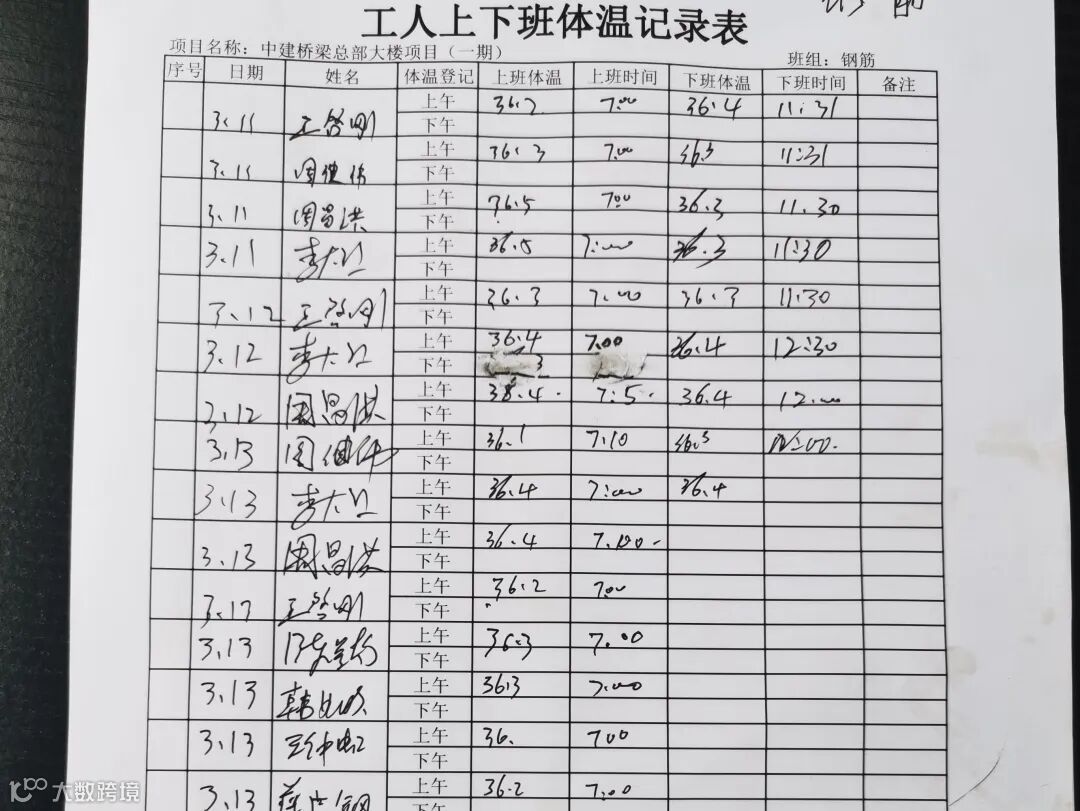 工人上下班体温记录表
项目名称：中建桥梁总部大楼项目（一期） 班组：钢筋
序号 日期 姓名 体温登记 上班体温 上班时间 下班体温 下班时间 备注
3.11 王啓刚 上午 36.2 7:00 36.4 11:31
下午
3.11 周继伟 上午 36.3 7:00 36.3 11:31
下午
3.11 周昌洪 上午 36.5 7:00 36.3 11.30
下午
3.11 李大江 上午 36.5 7:00 36.3 11:30
下午
3.12 王啓刚 上午 36.3 7:00 36.3 11:30
下午
3.12 李大江 上午 36.4 7:00 36.4 12:30
下午 3
3.12 周昌洪 上午 36.4 7:5 36.4 12:00
下午
3.13 周继伟 上午 36.1 7.10 36.3 12:00
下午
3.13 李大江 上午 36.4 7:00 36.4
下午
3.13 周昌洪 上午 36.4 7.00
下午
3.13 王啓刚 上午 36.2 7:00
下午
3.13 上午 36.3 7.00
下午
3.13 韩 上午 36.3 7:00
下午
3.13 上午 36. 7:00
下午
3.13 上午 36.2 7:00
下午
大数跨境